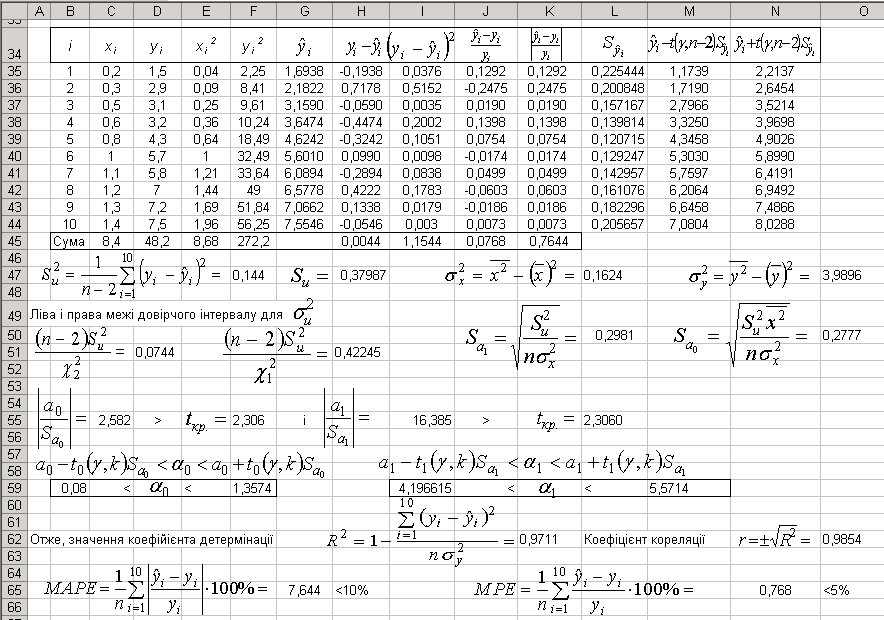 A B C D E F G H I J K L M N O
33
34 i x_i y_i x_i² y_i² ŷ_i y_i − ŷ_i (y_i − ŷ_i)² (ŷ_i − y_i)/y_i |(ŷ_i − y_i)/y_i| S_ŷi ŷ_i − t(γ,n−2)S_ŷi ŷ_i + t(γ,n−2)S_ŷi
35 1 0,2 1,5 0,04 2,25 1,6938 -0,1938 0,0376 0,1292 0,1292 0,225444 1,1739 2,2137
36 2 0,3 2,9 0,09 8,41 2,1822 0,7178 0,5152 -0,2475 0,2475 0,200848 1,7190 2,6454
37 3 0,5 3,1 0,25 9,61 3,1590 -0,0590 0,0035 0,0190 0,0190 0,157167 2,7966 3,5214
38 4 0,6 3,2 0,36 10,24 3,6474 -0,4474 0,2002 0,1398 0,1398 0,139814 3,3250 3,9698
39 5 0,8 4,3 0,64 18,49 4,6242 -0,3242 0,1051 0,0754 0,0754 0,120715 4,3458 4,9026
40 6 1 5,7 1 32,49 5,6010 0,0990 0,0098 -0,0174 0,0174 0,129247 5,3030 5,8990
41 7 1,1 5,8 1,21 33,64 6,0894 -0,2894 0,0838 0,0499 0,0499 0,142957 5,7597 6,4191
42 8 1,2 7 1,44 49 6,5778 0,4222 0,1783 -0,0603 0,0603 0,161076 6,2064 6,9492
43 9 1,3 7,2 1,69 51,84 7,0662 0,1338 0,0179 -0,0186 0,0186 0,182296 6,6458 7,4866
44 10 1,4 7,5 1,96 56,25 7,5546 -0,0546 0,003 0,0073 0,0073 0,205657 7,0804 8,0288
45 Сума 8,4 48,2 8,68 272,2 0,0044 1,1544 0,0768 0,7644
46
47 S_u² = 1/(n−2) ∑_{i=1}^{10} (y_i − ŷ_i)² = 0,144 S_u = 0,37987 σ_x² = x̅² − (x̅)² = 0,1624 σ_y² = y̅² − (y̅)² = 3,9896
48
49 Ліва і права межі довірчого інтервалу для σ_u²
50 S_a1 = √(S_u²/(nσ_x²)) = 0,2981 S_a0 = √(S_u² x̅²/(nσ_x²)) = 0,2777
51 (n−2)S_u²/χ_2² = 0,0744 (n−2)S_u²/χ_1² = 0,42245
52
53
54
55 |a_0/S_a0| = 2,582 > t_кр. = 2,306 і |a_1/S_a1| = 16,385 > t_кр. = 2,3060
56
57
58 a_0 − t_0(γ,k)S_a0 < α_0 < a_0 + t_0(γ,k)S_a0 a_1 − t_1(γ,k)S_a1 < α_1 < a_1 + t_1(γ,k)S_a1
59 0,08 < α_0 < 1,3574 4,196615 < α_1 < 5,5714
60
61
62 Отже, значення коефійієнта детермінації R² = 1 − ∑_{i=1}^{10} (y_i − ŷ_i)²/(nσ_y²) = 0,9711 Коефіцієнт кореляції r = ±√R² = 0,9854
63
64
65 MAPE = 1/n ∑_{i=1}^{10} |(ŷ_i − y_i)/y_i| · 100% = 7,644 <10% MPE = 1/n ∑_{i=1}^{10} (ŷ_i − y_i)/y_i · 100% = 0,768 <5%
66